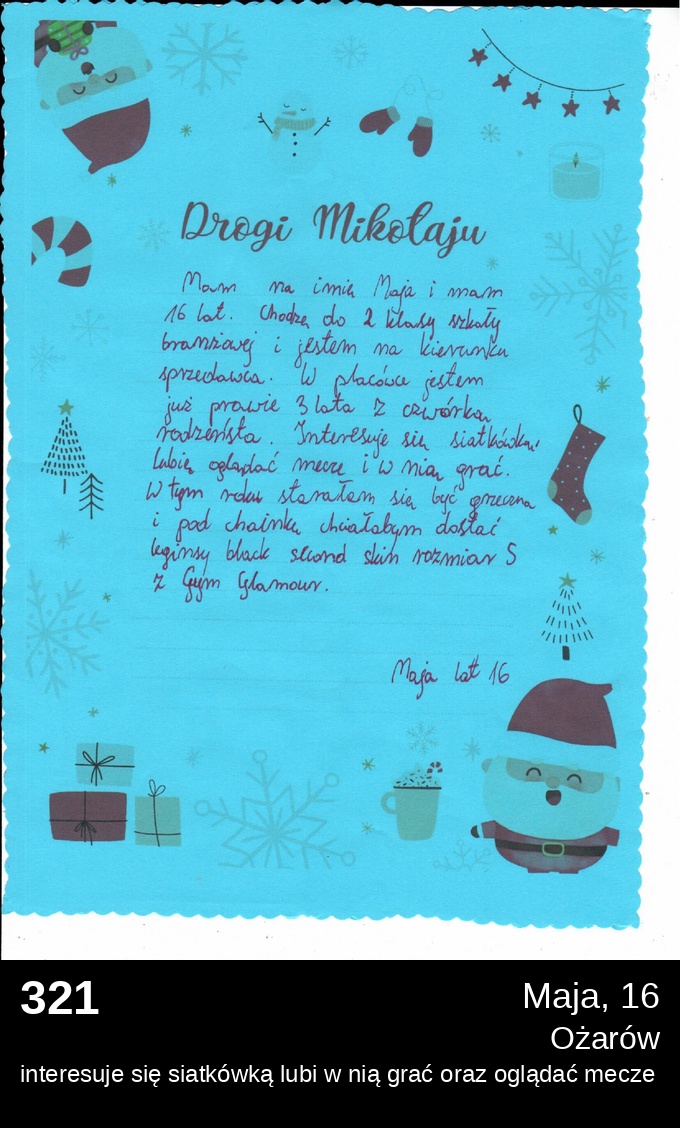 Drogi Mikołaju
Mam na imię Maja i mam
16 lat. Chodzę do 2 klasy szkoły
branżowej i jestem na kierunku
sprzedawca. W placówce jestem
już prawie 3 lata z czwórką
rodzeństa. Interesuje się siatkówką,
lubię oglądać mecze i w nią grać.
W tym roku starałam się być grzeczna
i pod choinkę chciałabym dostać
leginsy black second skin rozmiar S
z Gym Glamour.
Maja lat 16
321
Maja, 16
Ożarów
interesuje się siatkówką lubi w nią grać oraz oglądać mecze